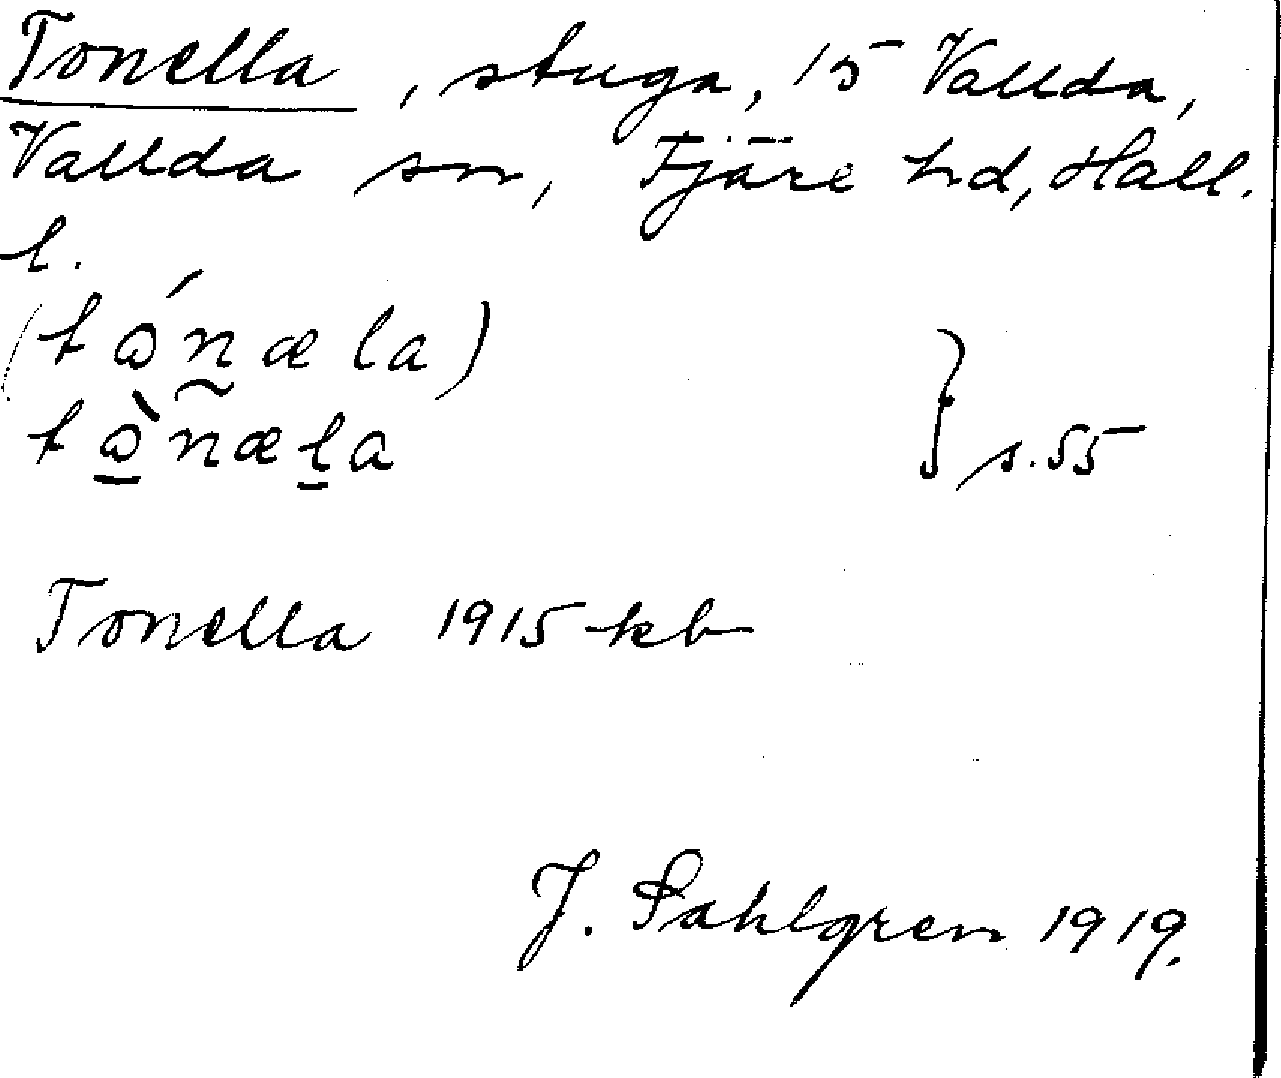 Tonella, stuga, 15 Vallda,
Vallda sn, Fjäre hd, Hall.
l.
(tǫ́næla)
tǫ̀næla } s. 55
Tonella 1915 kb
J. Sahlgren 1919.